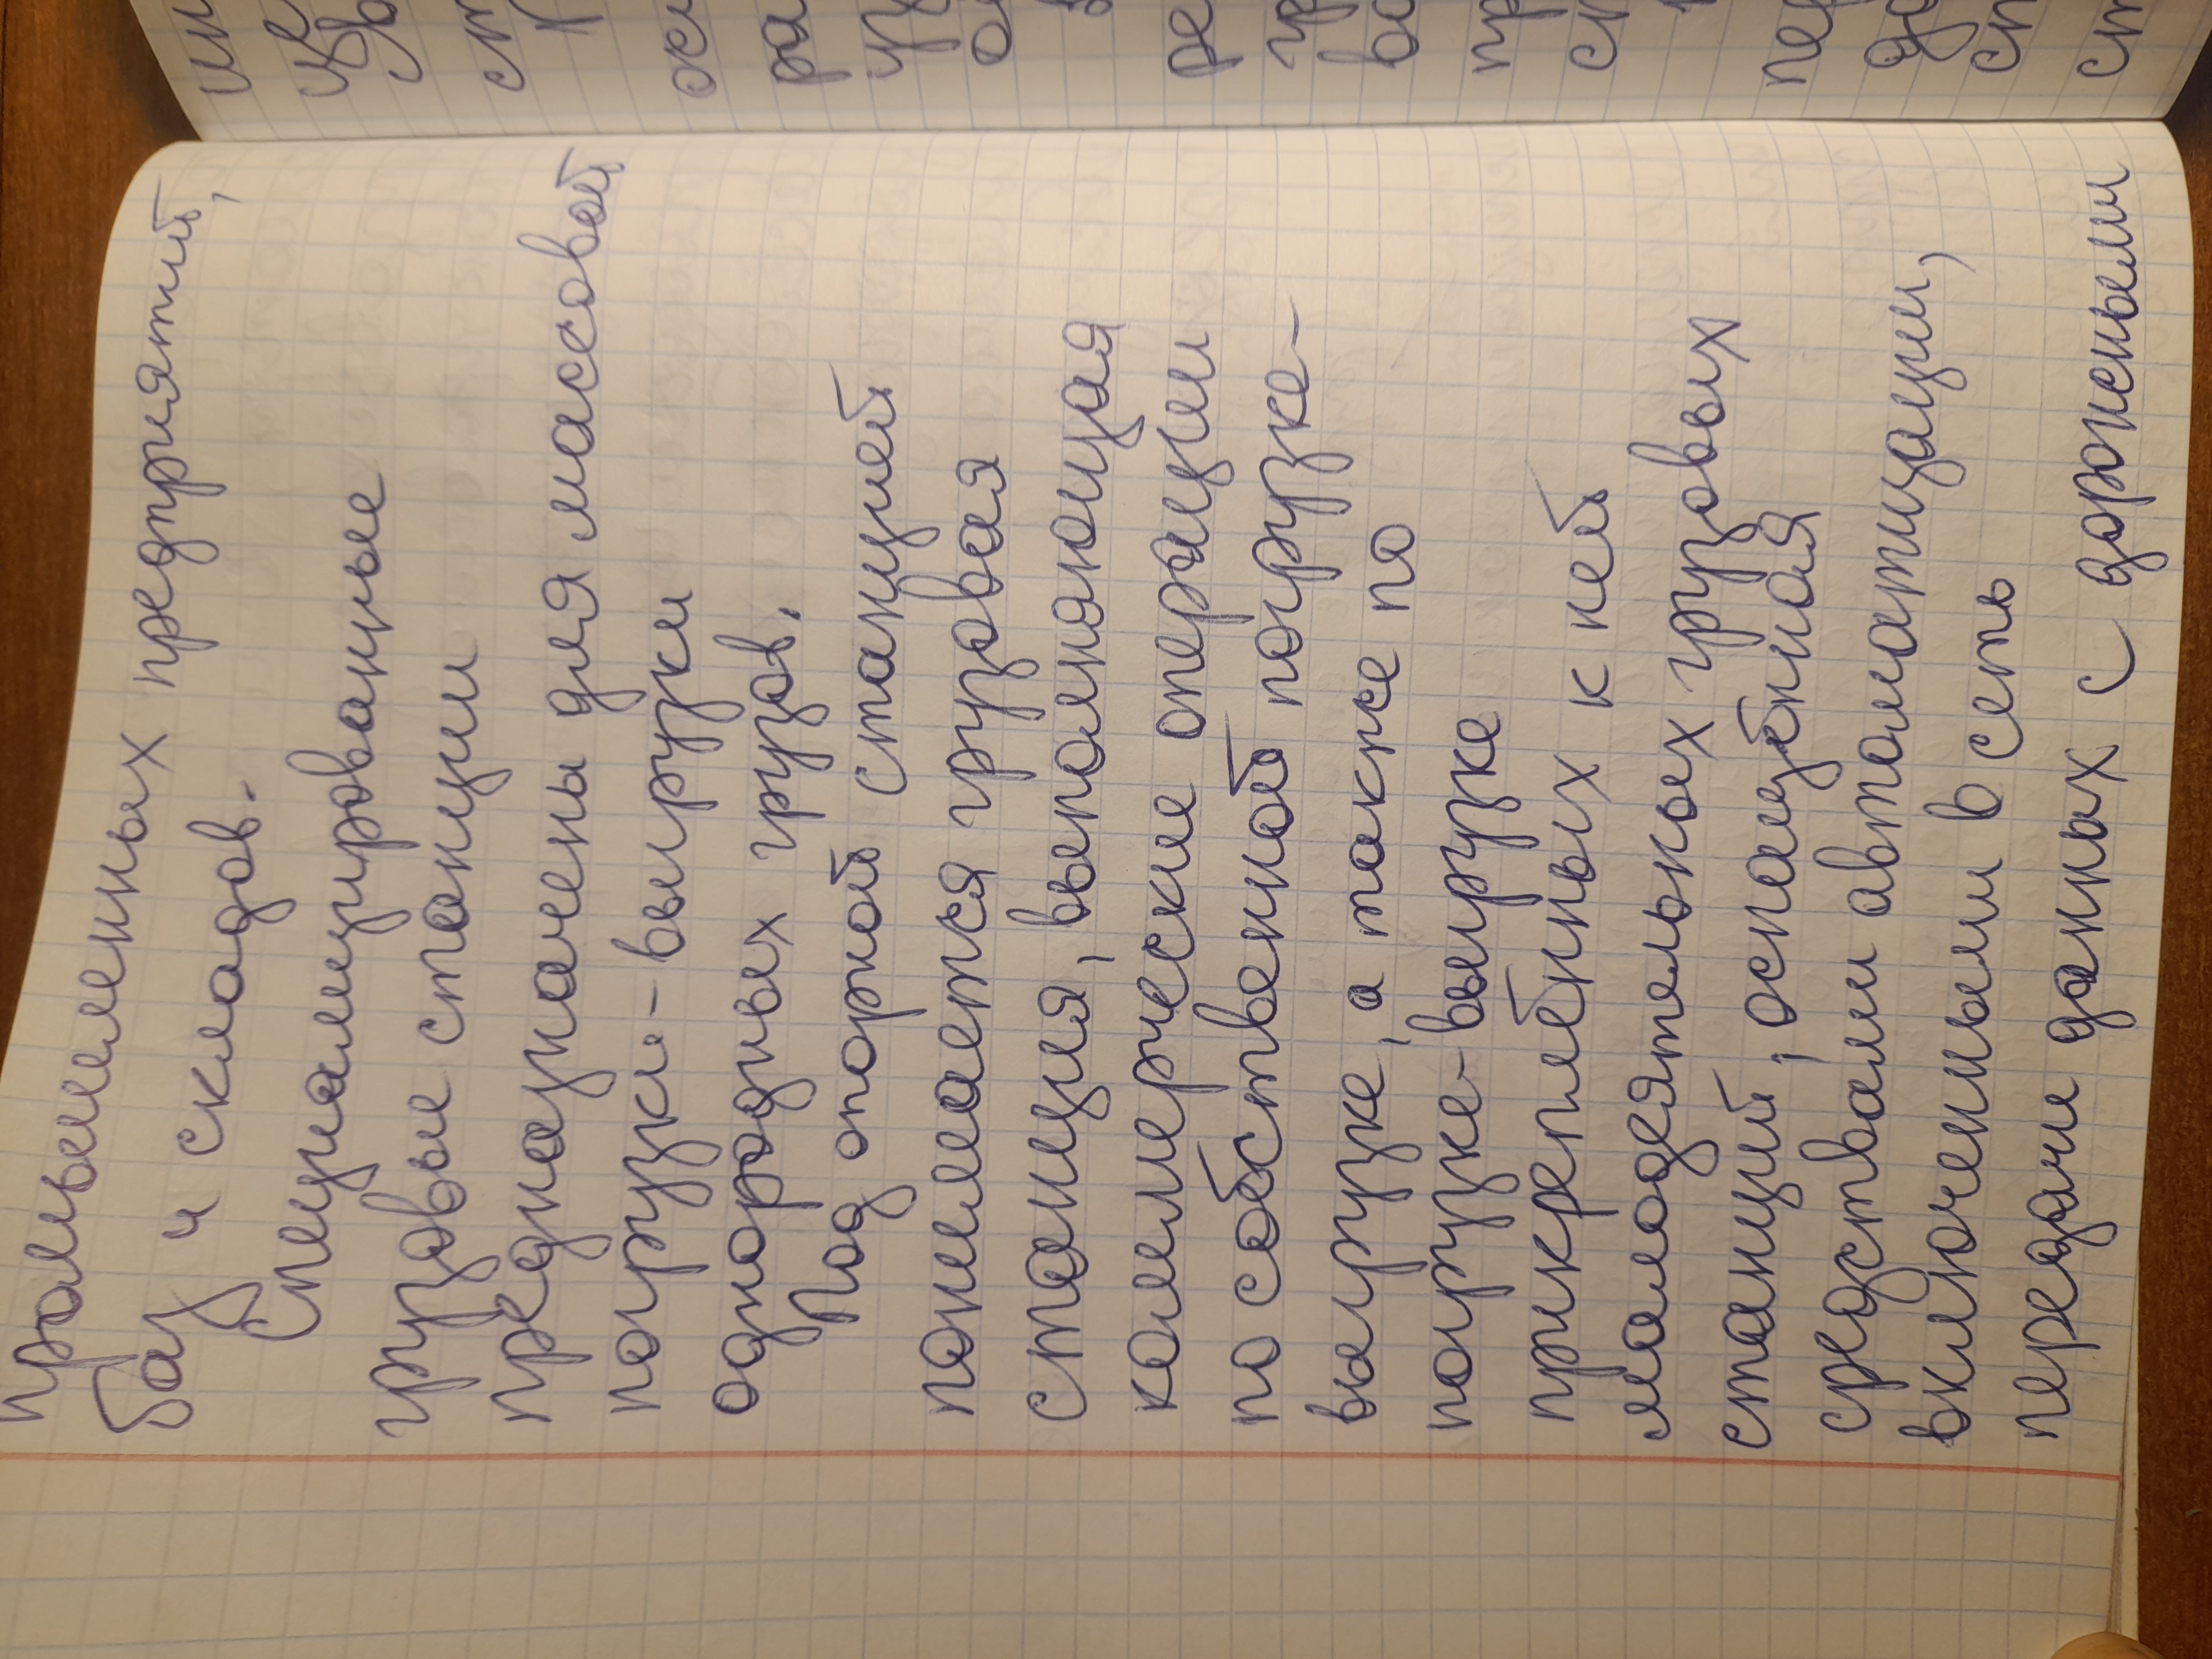 промышленных предприятий,
баз и складов.
Специализированные
грузовые станции
предназначены для массовой
погрузки-выгрузки
однородных грузов.
Под опорной станцией
понимается грузовая
станция, выполняющая
коммерческие операции
по собственной погрузке-
выгрузке, а также по
погрузке-выгрузке
прикреплённых к ней
малодеятельных грузовых
станций, оснащённая
средствами автоматизации,
включенными в сеть
передачи данных с дорожными